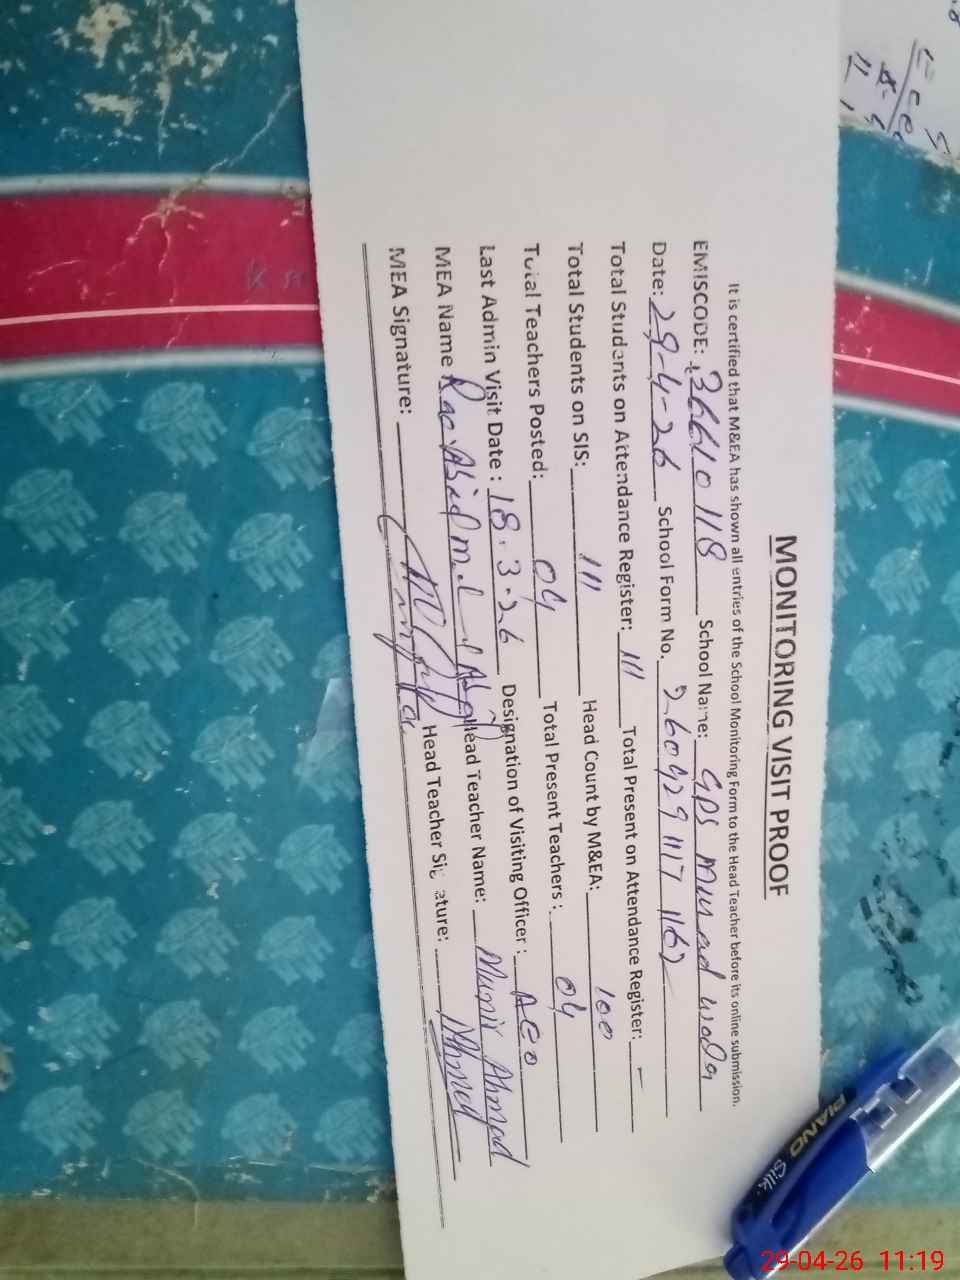 MONITORING VISIT PROOF
It is certified that M&EA has shown all entries of the School Monitoring Form to the Head Teacher before its online submission.
EMISCODE: 36610118 School Name: GPS Murad wala
Date: 29-4-26 School Form No. 26042911171162
Total Students on Attendance Register: 111 Total Present on Attendance Register: —
Total Students on SIS: 111 Head Count by M&EA: 100
Total Teachers Posted: 04 Total Present Teachers : 04
Last Admin Visit Date : 18.3.26 Designation of Visiting Officer : AEO
MEA Name Rao Abid Head Teacher Name: Munir Ahmad
MEA Signature: Head Teacher Signature: Ahmed
PIANO Silk
29-04-26 11:19